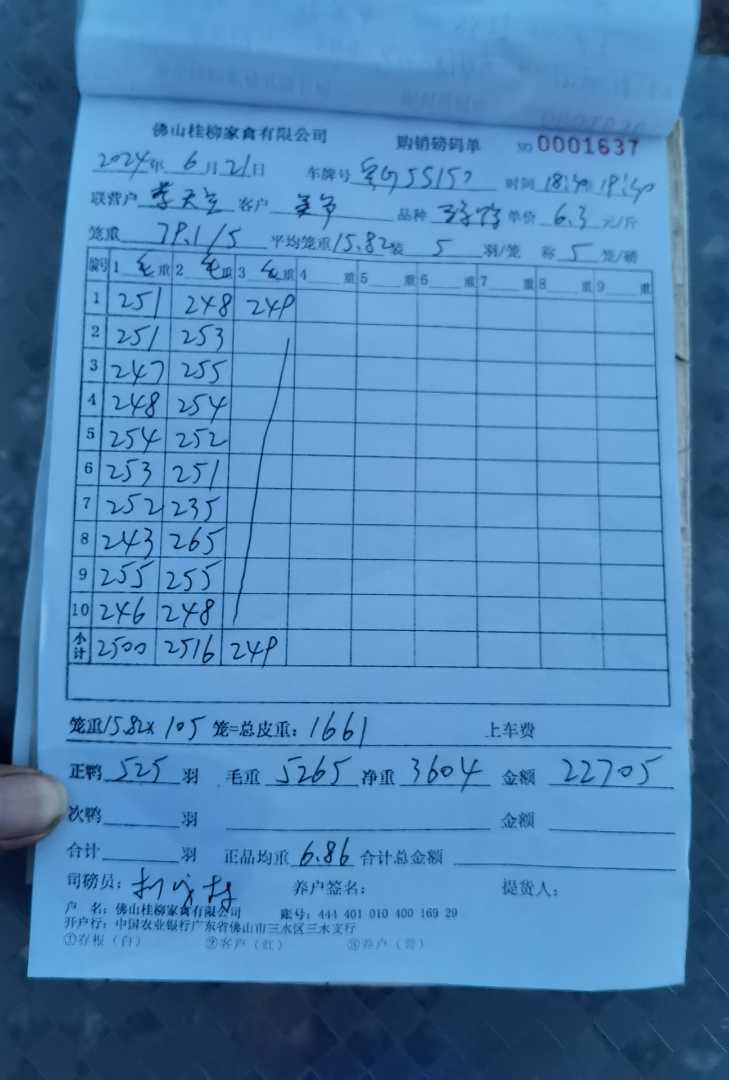 佛山桂柳家禽有限公司 购销磅码单 NO 0001637
2024年 6月21日 车牌号 55157 时间
联营户 李天 客户 品种 单价 6.3 元/斤
笼重 79.1/5 平均笼重 15.82 装 5 羽/笼 称 5 笼/磅
编号 1 毛重 2 毛重 3 毛重 4 重 5 重 6 重 7 重 8 重 9 重
1 251 248 249
2 251 253
3 247 255
4 248 254
5 254 252
6 253 251
7 252 235
8 243 265
9 255 255
10 246 248
小计 2500 2516 249
笼重15.82× 105 笼=总皮重: 1661 上车费
正鸭 525 羽 毛重 5265 净重 3604 金额 22705
次鸭 羽 金额
合计 羽 正品均重 6.86 合计总金额
司磅员: 养户签名: 提货人:
户 名: 佛山桂柳家禽有限公司 账号: 444 401 010 400 169 29
开户行: 中国农业银行广东省佛山市三水区三水支行
①存根(白) ②客户(红) ③养户(黄)